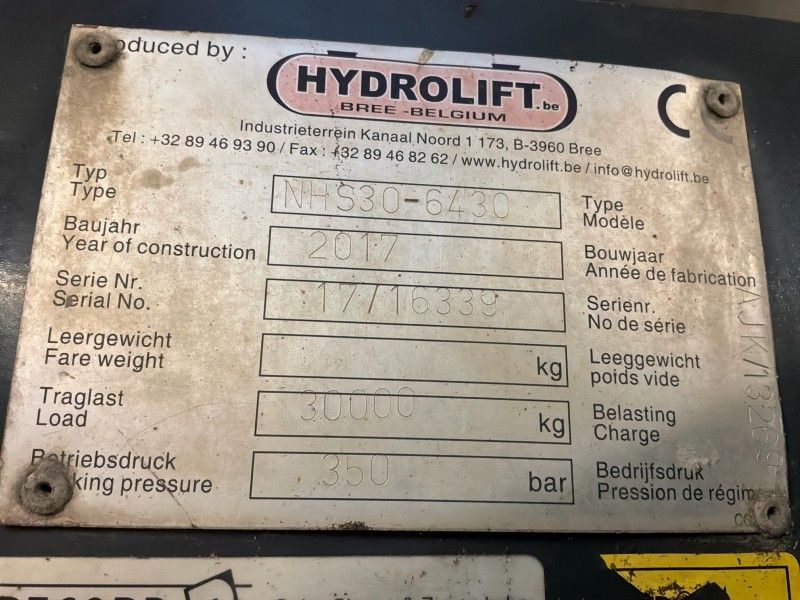 oduced by :
HYDROLIFT.be
BREE - BELGIUM
CE
Industrieterrein Kanaal Noord 1 173, B-3960 Bree
Tel : +32 89 46 93 90 / Fax : +32 89 46 82 62 / www.hydrolift.be / info@hydrolift.be
Typ
Type
NHS30-6430
Type
Modèle
Baujahr
Year of construction
2017
Bouwjaar
Année de fabrication
Serie Nr.
Serial No.
17/16339
Serienr.
No de série
Leergewicht
Fare weight
kg
Leeggewicht
poids vide
Traglast
Load
30000
kg
Belasting
Charge
Betriebsdruck
king pressure
350
bar
Bedrijfsdruk
Pression de régim
AJK/13269